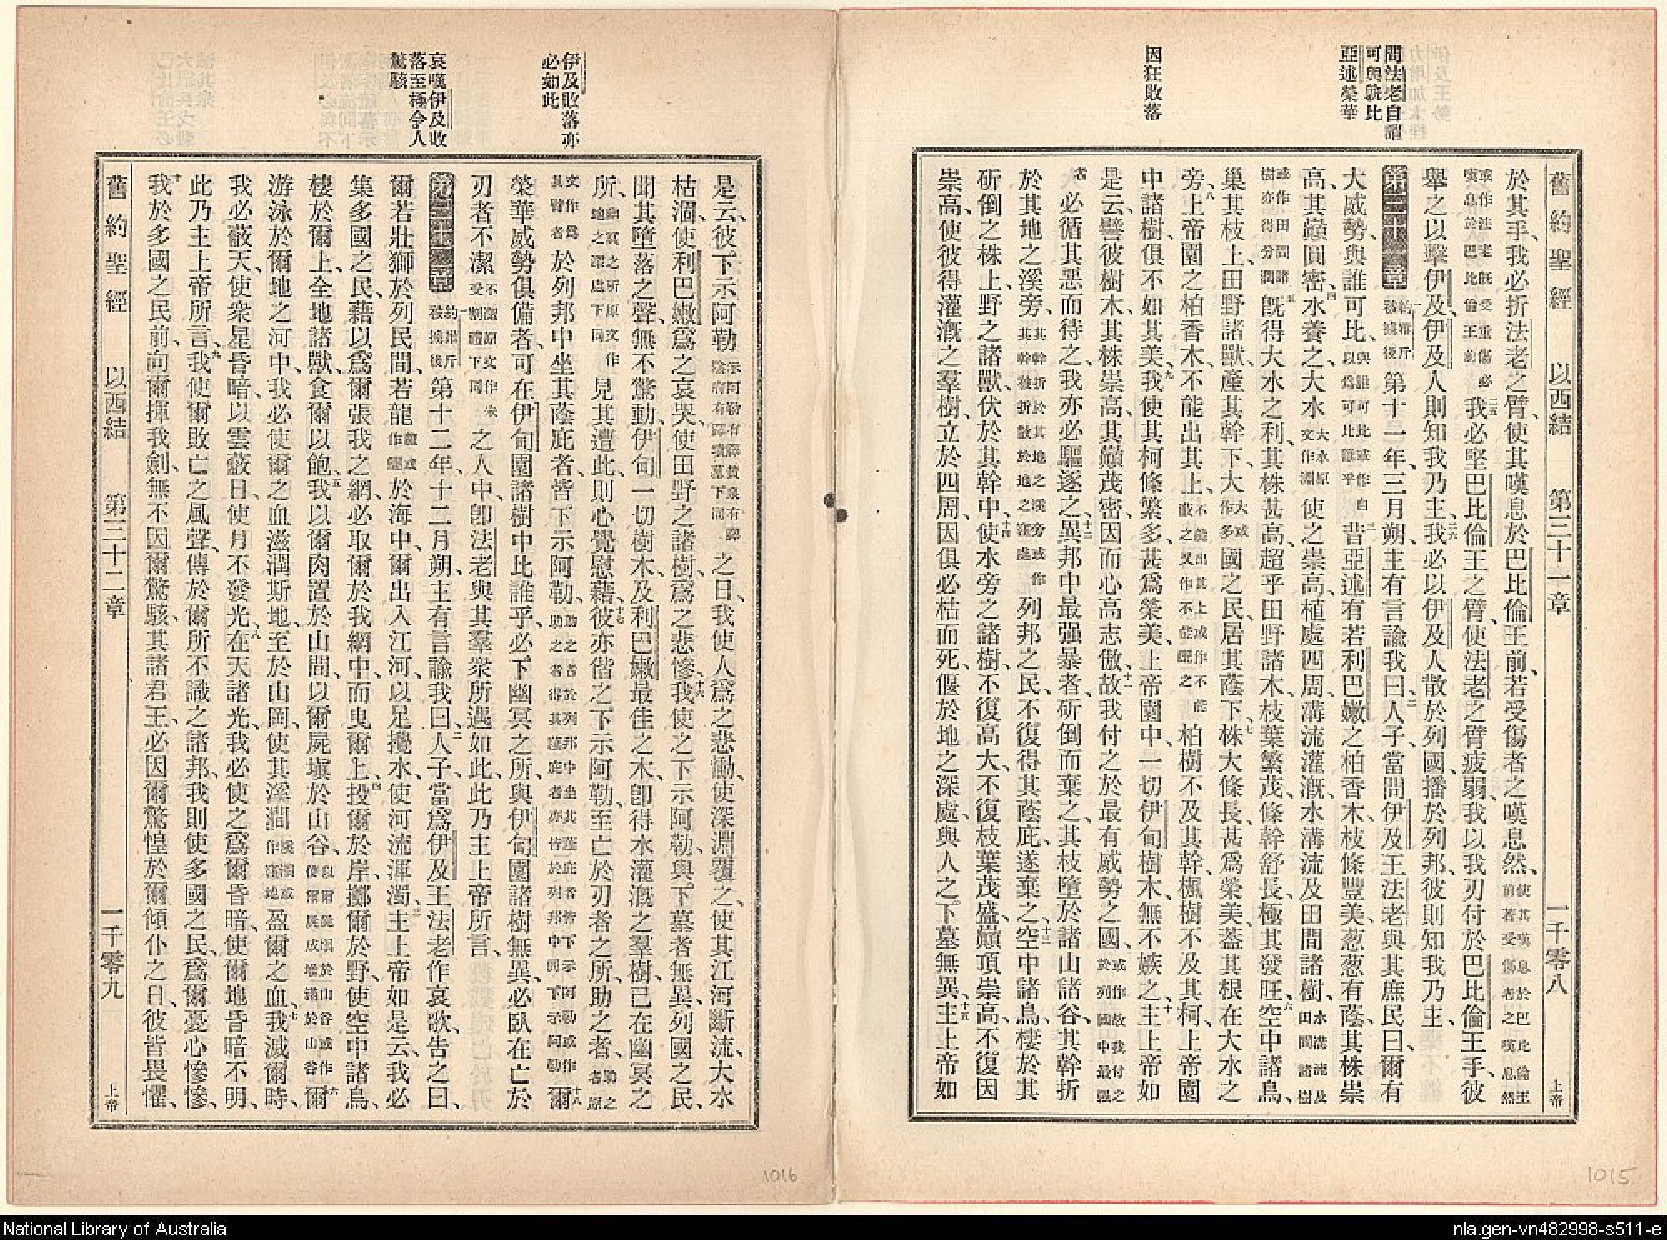 問法老自謂
可與孰比
亞述榮華
因狂敗落
舊約聖經 以西結 第三十一章 一千零八 上帝
於其手、我必折法老之臂、使其嘆息於巴比倫王前、若受傷者之嘆息然、使其嘆息於巴比倫王前若受傷者之嘆息然
我必堅巴比倫王之臂、使法老之臂疲弱、我以我刃付於巴比倫王手、彼
舉之以擊伊及、伊及人則知我乃主、我必以伊及人散於列國、播於列邦、彼則知我乃主、
第三十一章 第十一年三月朔、主有言諭我曰、人子當問伊及王法老與其庶民曰、爾有
大威勢、與誰可比、昔亞述有若利巴嫩之柏香木、枝條豐美、葱葱有蔭、其株崇
高、其巔圓密、水養之、大水使之崇高、植處四周、溝流灌漑、水溝流及田間諸樹、
既得大水之利、其株甚高、超乎田野諸木、枝葉繁茂、條幹舒長、極其發旺、空中諸鳥、
巢其枝上、田野諸獸、產其幹下、大國之民、居其蔭下、株大條長、甚爲榮美、蓋其根在大水之
旁、上帝園之柏香木、不能出其上、柏樹不及其幹、楓樹不及其柯、上帝園
中諸樹、俱不如其美、我使其柯條繁多、甚爲榮美、上帝園中、一切伊甸樹木、無不嫉之、主上帝如
是云、譬彼樹木、其株崇高、其巔茂密、因而心高志傲、故我付之於最有威勢之國、
必循其惡而待之、我亦必驅逐之、異邦中最强暴者、斫倒而棄之、其枝墮於諸山諸谷、其幹折
於其地之溪旁、列邦之民、不復得其蔭庇、遂棄之、空中諸鳥、棲於其
斫倒之株上、野之諸獸、伏於其幹中、使水旁之諸樹、不復高大、不復枝葉茂盛、巔頂崇高、不復因
崇高、使彼得灌漑之羣樹、立於四周、因俱必枯而死、偃於地之深處、與人之下墓無異、主上帝如
1015
伊及敗落亦
必如此
哀嘆伊及收
落至極令人
驚駭
是云、彼下示阿勒之日、我使人爲之悲慟、使深淵覆之、使其江河斷流、大水
枯涸、使利巴嫩爲之哀哭、使田野之諸樹、爲之悲慘、我使之下示阿勒、與下墓者無異、列國之民、
聞其墮落之聲、無不驚動、伊甸一切樹木、及利巴嫩最佳之木、卽得水灌漑之羣樹、已在幽冥之
所、見其遭此、則心覺慰藉、彼亦偕之下示阿勒、至亡於刃者之所、助之者、
於列邦中坐其蔭庇者、皆下示阿勒、爾
榮華威勢俱備者、可在伊甸園諸樹中比誰乎、必下幽冥之所、與伊甸園諸樹無異、必臥在亡於
刃者不潔之人中、卽法老與其羣衆所遇如此、此乃主上帝所言、
第三十二章 第十二年、十二月朔、主有言諭我曰、人子當爲伊及王法老作哀歌、告之曰、
爾若壯獅於列民間、若龍於海中、爾出入江河、以足攪水、使河流渾濁、主上帝如是云、我必
集多國之民、藉以爲爾張我之網、必取爾於我網中、而曳爾上、投爾於岸、擲爾於野、使空中諸鳥、
棲於爾上、全地諸獸、食爾以飽、我以爾肉置於山間、以爾屍塡於山谷、爾
游泳於爾地之河中、我必使爾之血滋潤斯地、至於山岡、使其淫澗盈爾之血、我滅爾時、
我必蔽天、使衆星昏暗、以雲蔽日、使月不發光、在天諸光、我必使之爲爾昏暗、使爾地昏暗不明、
此乃主上帝所言、我使爾敗亡之風聲、傳於爾所不識之諸邦、我則使多國之民、爲爾憂心慘慘、
我於多國之民前、向爾揮我劍、無不因爾驚駭、其諸君王、必因爾驚惶、於爾傾仆之日、彼皆畏懼、
舊約聖經 以西結 第三十二章 一千零九 上帝
1016
National Library of Australia
nla.gen-vn482998-s511-e